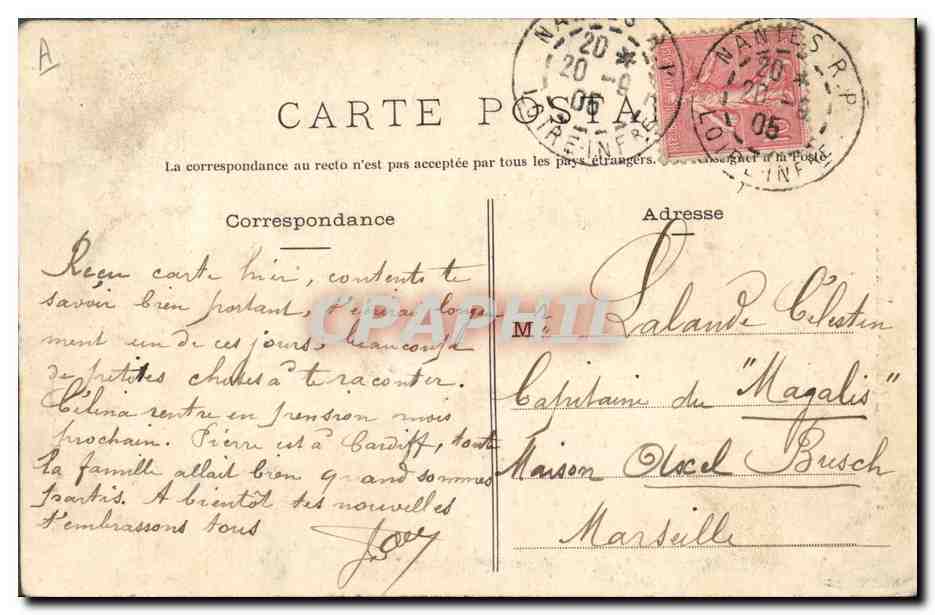 A
CARTE POSTA
La correspondance au recto n'est pas acceptée par tous les pays étrangers. enseigner à la Poste
NANTES R.P.
20 *
20 -9
05
LOIRE-INFRE
NANTES R.P.
20 *
20 -9
05
LOIRE-INFRE
Correspondance
Reçu carte hier, contents te
savoir bien portant, t'écrirai longue
ment un de ces jours, beaucoup
de petites choses à te raconter.
Célina rentre en pension mois
prochain. Pierre est à Cardiff, toute
la famille allait bien quand sommes
partis. A bientôt tes nouvelles
t'embrassons tous
Adresse
M Lalande Célestin
Capitaine du "Magalis"
Maison Axel Busch
Marseille
CPAPHIL